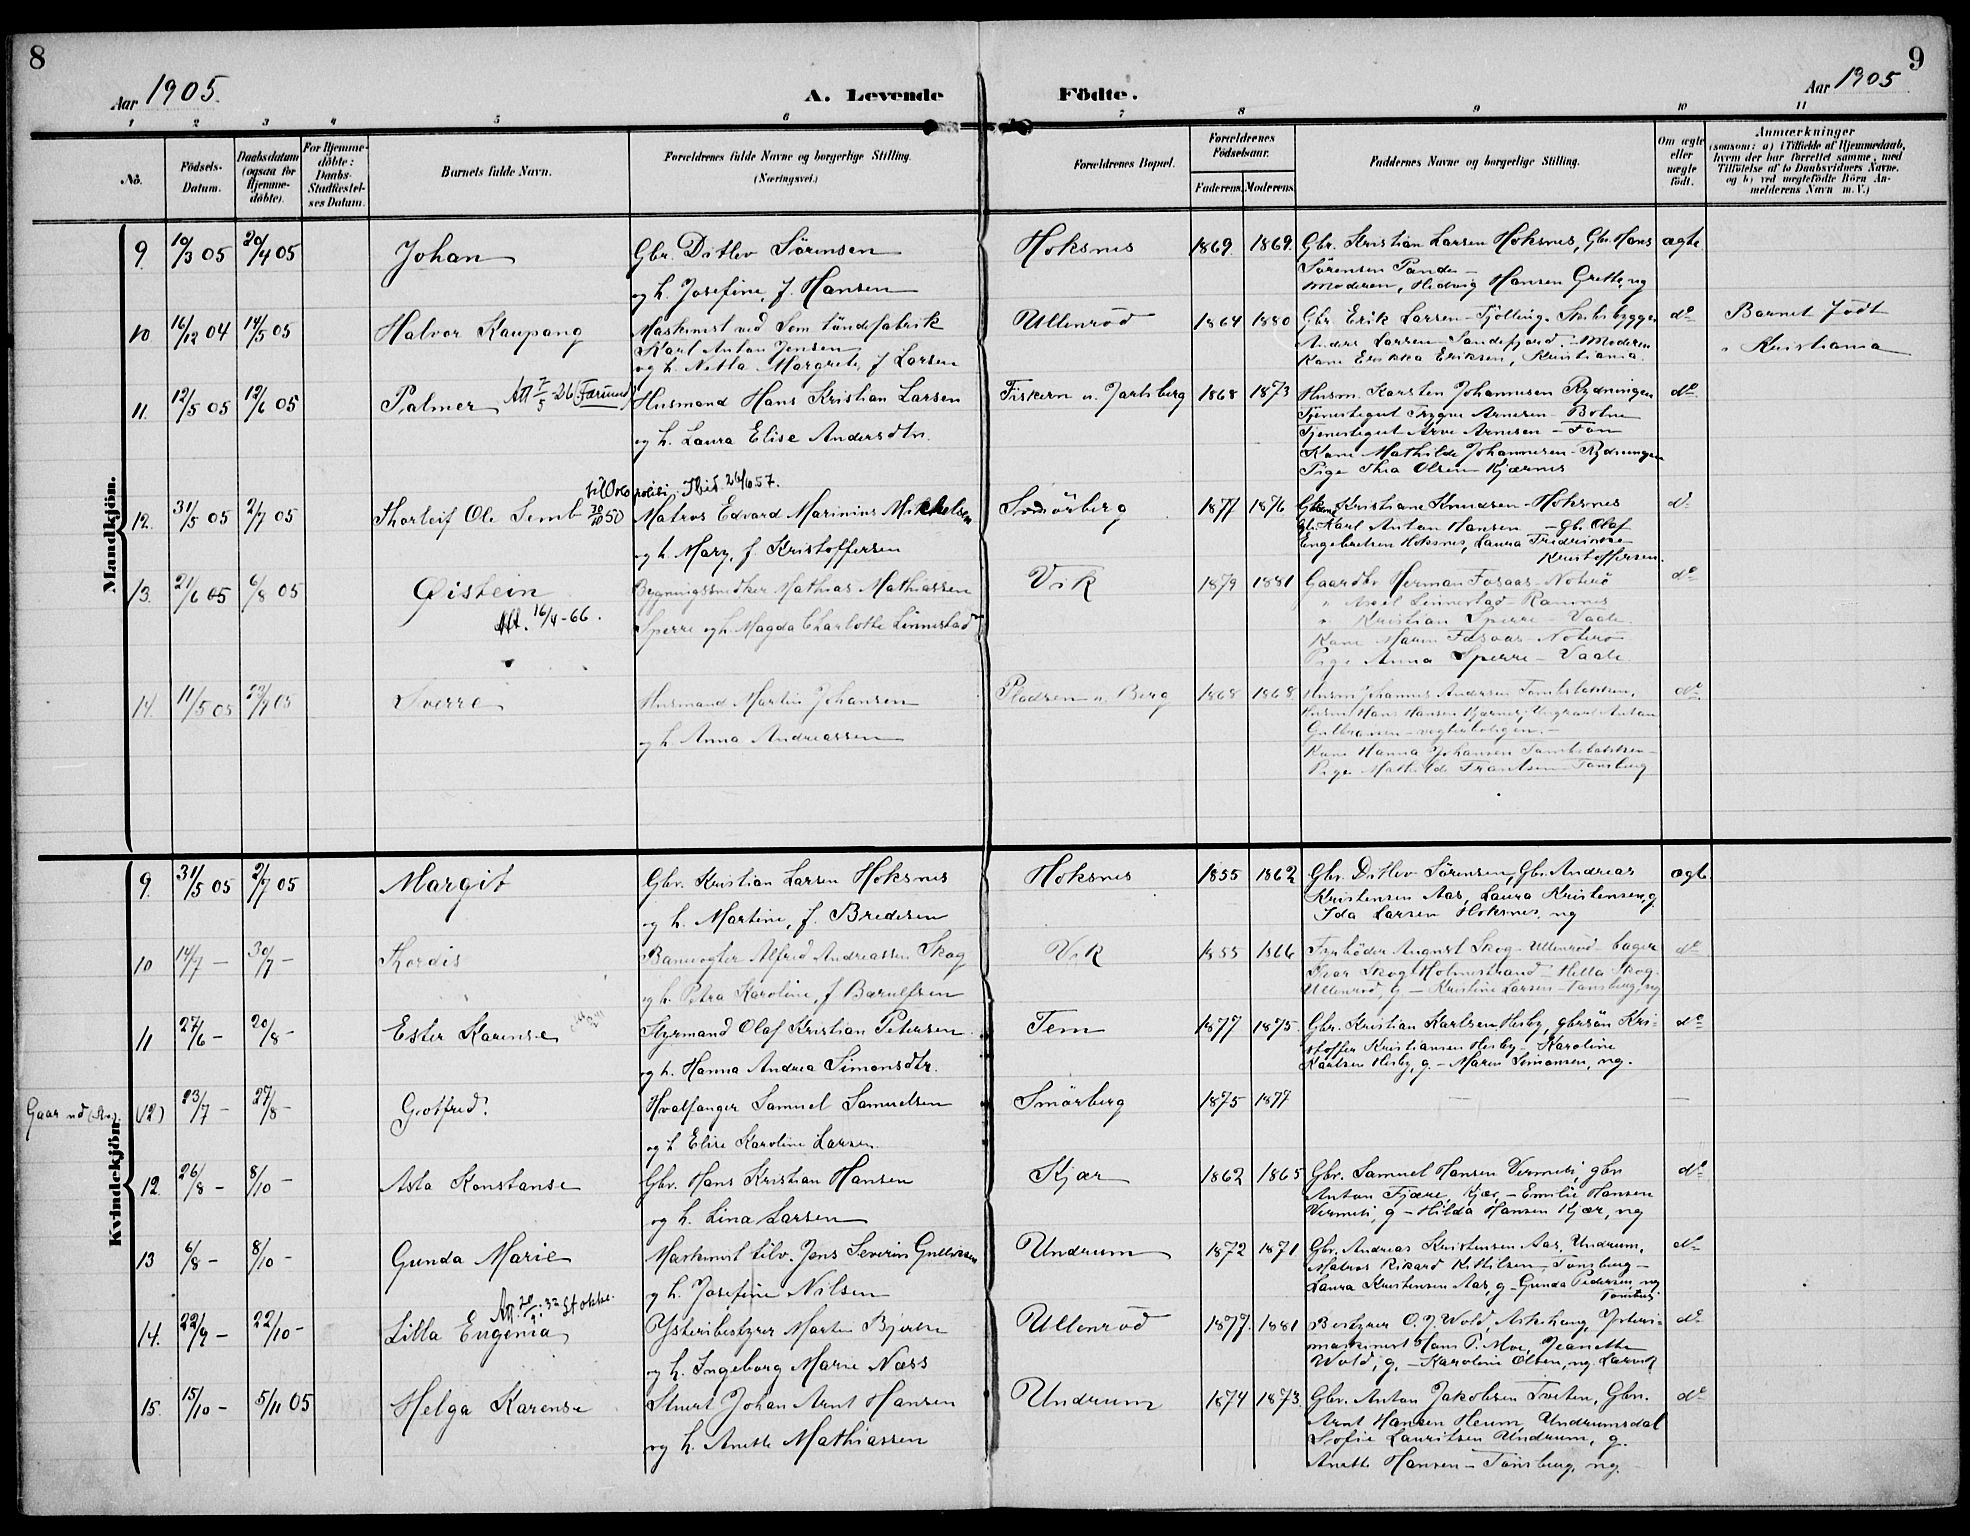 8
9
Aar 1905.
A. Levende Födte.
Aar 1905
1 2 3 4 5 6 7 8 9 10 11
No.
Födsels-Datum.
Daabsdatum (ogsaa for Hjemmedöbte).
For Hjemmedöbte: Daabs-Stadfæstelses Datum.
Barnets fulde Navn.
Forældrenes fulde Navne og borgerlige Stilling. (Næringsvei.)
Forældrenes Bopæl.
Forældrenes Födselsaar.
Faderens. Moderens.
Faddernes Navne og borgerlige Stilling.
Om ægte eller uægte födt.
Anmærkninger
(saasom: a) (Tilfælde af Hjemmedaab, hvem der har forrettet samme, med Tilföielse af to Daabsvidners Navne, og b) ved uægtefödte Börn Anmelderens Navn m. V.)
Mandkjön.
9. 10/3 05 20/4 05 Johan
Gbr. Ditlev Sörensen
og h. Josefine, f. Hansen
Hoksnes 1869 1869.
Gbr. Kristian Larsen Hoksnes, Gbr. Hans
Sörensen Pande –
Moderen, Hedvig Hansen Grette, ug
ægte
10 16/12 04 14/5 05 Halvor Kaupang
Maskinist ved Sem töndefabrik
Karl Anton Jensen
og h. Netta Margrete, f. Larsen
Ullenröd 1864 1880
Gbr. Erik Larsen – Tjölling. Skibsbygger
Anders Larsen Sandefjord. – Moderen
Kane Erikka Eriksen, Kristiania.
do
Barnet födt
i Kristiania
11. 12/5 05 12/6 05 Palmer Att 7/5-26 (Færund)
Husmand Hans Kristian Larsen
og h. Laura Elise Andersdtr.
Fiskern u. Jarlsberg 1868 1873
Husm. Karsten Johannesen Rydningen
Tjenestegut Trygve Arnesen – Botne
Tjenestegut Arve Arnesen – Fon
Kane Mathilde Johannesen – Rydningen
Pige Thea Olsen Kjærnes
do
12. 31/5 05 2/7 05 Thorleif Ole Semb 30/10 50
politi, Ibid. 26/6 57.
Matros Edvard Marinius Mikkelsen
og h. Mary, f. Kristoffersen
Smörberg 1877 1876
Kristiane Knudsen – Hoksnes
Karl Anton Hansen – gb. Olaf
Engebretsen Hoksnes, Laura Fredrikke
Kristoffersen.
do
13. 21/6 05 6/8 05 Øistein
Att. 16/4-66.
Bygningssnedker Mathias Mathiassen
Sperre og h. Magda Charlotte Linnestad
Vik 1879 1881
Gaardbr Herman Fosaas – Noterö
" Axel Linnestad – Ramnes
" Kristian Sperre – Vaale.
Kane Maren Fosaas – Noterö
Pige Anna Sperre – Vaale.
do
14. 11/5 05 /9 05 Sverre
Husmand Martin Johansen
og h. Anna Andreassen
Pladsen u. Berg 1868 1868
Husm Johannes Andersen
Husm Hans Hansen Kjærnes, Ungkarl Anton
Gulbransen – vogterboligen. –
Kane Hanna Johansen
Pige Mathilde Frantsen – Tønsberg
do
Kvindekjön.
9. 31/5 05 2/7 05 Margit
Gbr. Kristian Larsen Hoksnes
og h. Martine, f. Bredesen
Hoksnes 1855 1862
Gbr. Ditlev Sörensen, Gbr. Andreas
Kristensen Aas, Laura Kristensen, g.
Ida Larsen Hoksnes, ug
ægte
10 14/7 – 30/7 – Thordis
Banevogter Alfred Andreassen Skog
og h. Petra Karoline, f. Barulfsen
Vik 1855 1866
Fyrböder August Skog – Ullenröd – bager
Thor Skog Holmestrand – Hilla Skog
Ullenröd, g. – Kristine Larsen – Tønsberg, ug
do
11 27/6 – 20/8 – Ester Karense
Styrmand Olaf Kristian Petersen
og h. Hanna Andrea Simonsdtr.
Tem 1877 1875.
Gbr. Kristian Karlsen Hesby, gbrsön Kri-
stoffer Kristiansen Hesby. Karoline
Karlsen Hesby, g. – Maren Simonsen, ug.
do
Gaar ud
(12) 23/7 – 27/8 – Gotfred!
Hvalfanger Samuel Samuelsen
og h Elise Karoline Larsen
Smörberg 1875 1877
– –
12. 26/8 – 8/10 – Asta Konstanse
Gbr. Hans Kristian Hansen
og h. Lina Larsen
Kjær 1862 1865
Gbr. Samuel Hansen Vermeli, gbr.
Anton Fjære, Kjær, – Emilie Hansen
Vermeli, g – Hilda Hansen Kjær, ug
do
13 6/8 – 8/10 – Gunda Marie
Maskinist tilv. Jens Severin Gulliksen
og h. Josefine Nilsen
Undrum 1872 1871
Gbr. Andreas Kristensen Aas, Undrum,
Matros Rikard Kittilsen, Tønsberg –
Laura Kristensen Aas, g – Gunda Pedersen, ug
Tønsberg
do
14. 22/9 – 22/10 – Lilla Eugenia
Ysteribestyrer Martin Bjerke
og h. Ingeborg Marie Næss
Ullenröd 1877. 1881
Bestyrer O. J. Wold, Askehaug, Ysteri-
maskinist Hans P. Moe, Jeanette
Wold, g. – Karoline Olsen, ug. Larvik
do
15. 15/10 – 5/11 05 Helga Karense
Stuert Johan Arnt Hansen
og h. Anette Mathiassen
Undrum 1874 1873.
Gbr. Anton Jakobsen Tveten, Gbr.
Arnt Hansen Heum, Undrumsdal
Sofie Lauritsen Undrum, g.
Anette Hansen – Tønsberg, ug.
do